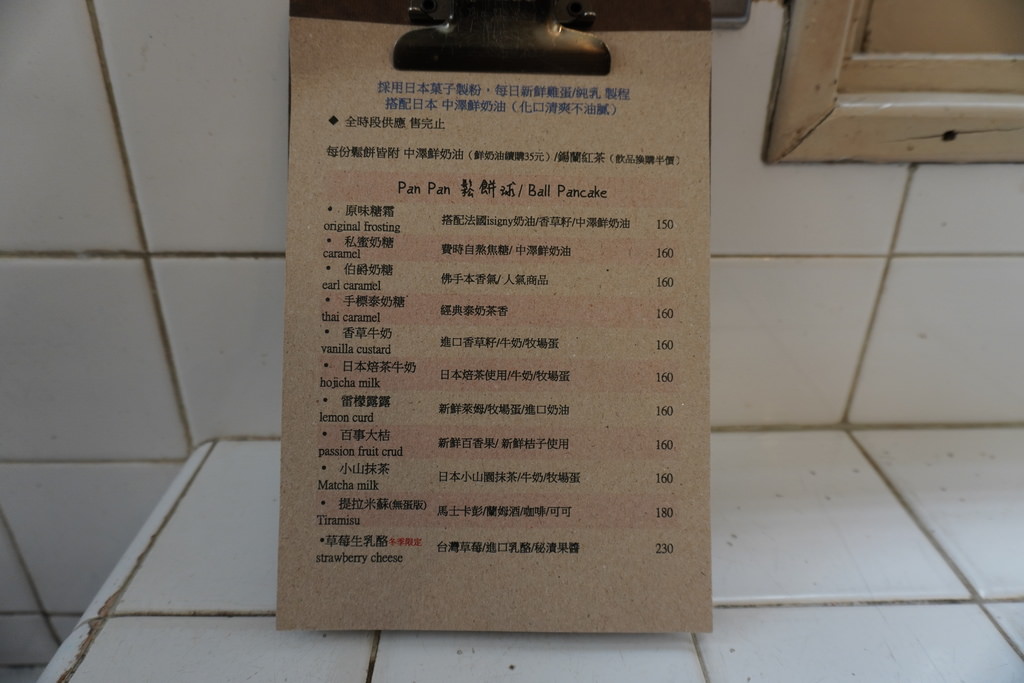 採用日本菓子製粉，每日新鮮雞蛋/純乳 製程
搭配日本 中澤鮮奶油（化口清爽不油膩）
◆ 全時段供應 售完止
每份鬆餅皆附 中澤鮮奶油（鮮奶油續購35元）/錫蘭紅茶（飲品換購半價）
Pan Pan 鬆餅球/ Ball Pancake
• 原味糖霜 搭配法國isigny奶油/香草籽/中澤鮮奶油 150
original frosting
• 私蜜奶糖 費時自熬焦糖/ 中澤鮮奶油 160
caramel
• 伯爵奶糖 佛手本香氣/ 人氣商品 160
earl caramel
• 手標泰奶糖 經典泰奶茶香 160
thai caramel
• 香草牛奶 進口香草籽/牛奶/牧場蛋 160
vanilla custard
• 日本焙茶牛奶 日本焙茶使用/牛奶/牧場蛋 160
hojicha milk
• 雷檬露露 新鮮萊姆/牧場蛋/進口奶油 160
lemon curd
• 百事大桔 新鮮百香果/ 新鮮桔子使用 160
passion fruit crud
• 小山抹茶 日本小山園抹茶/牛奶/牧場蛋 160
Matcha milk
• 提拉米蘇(無蛋版) 馬士卡彭/蘭姆酒/咖啡/可可 180
Tiramisu
•草莓生乳酪冬季限定 台灣草莓/進口乳酪/秘漬果醬 230
strawberry cheese